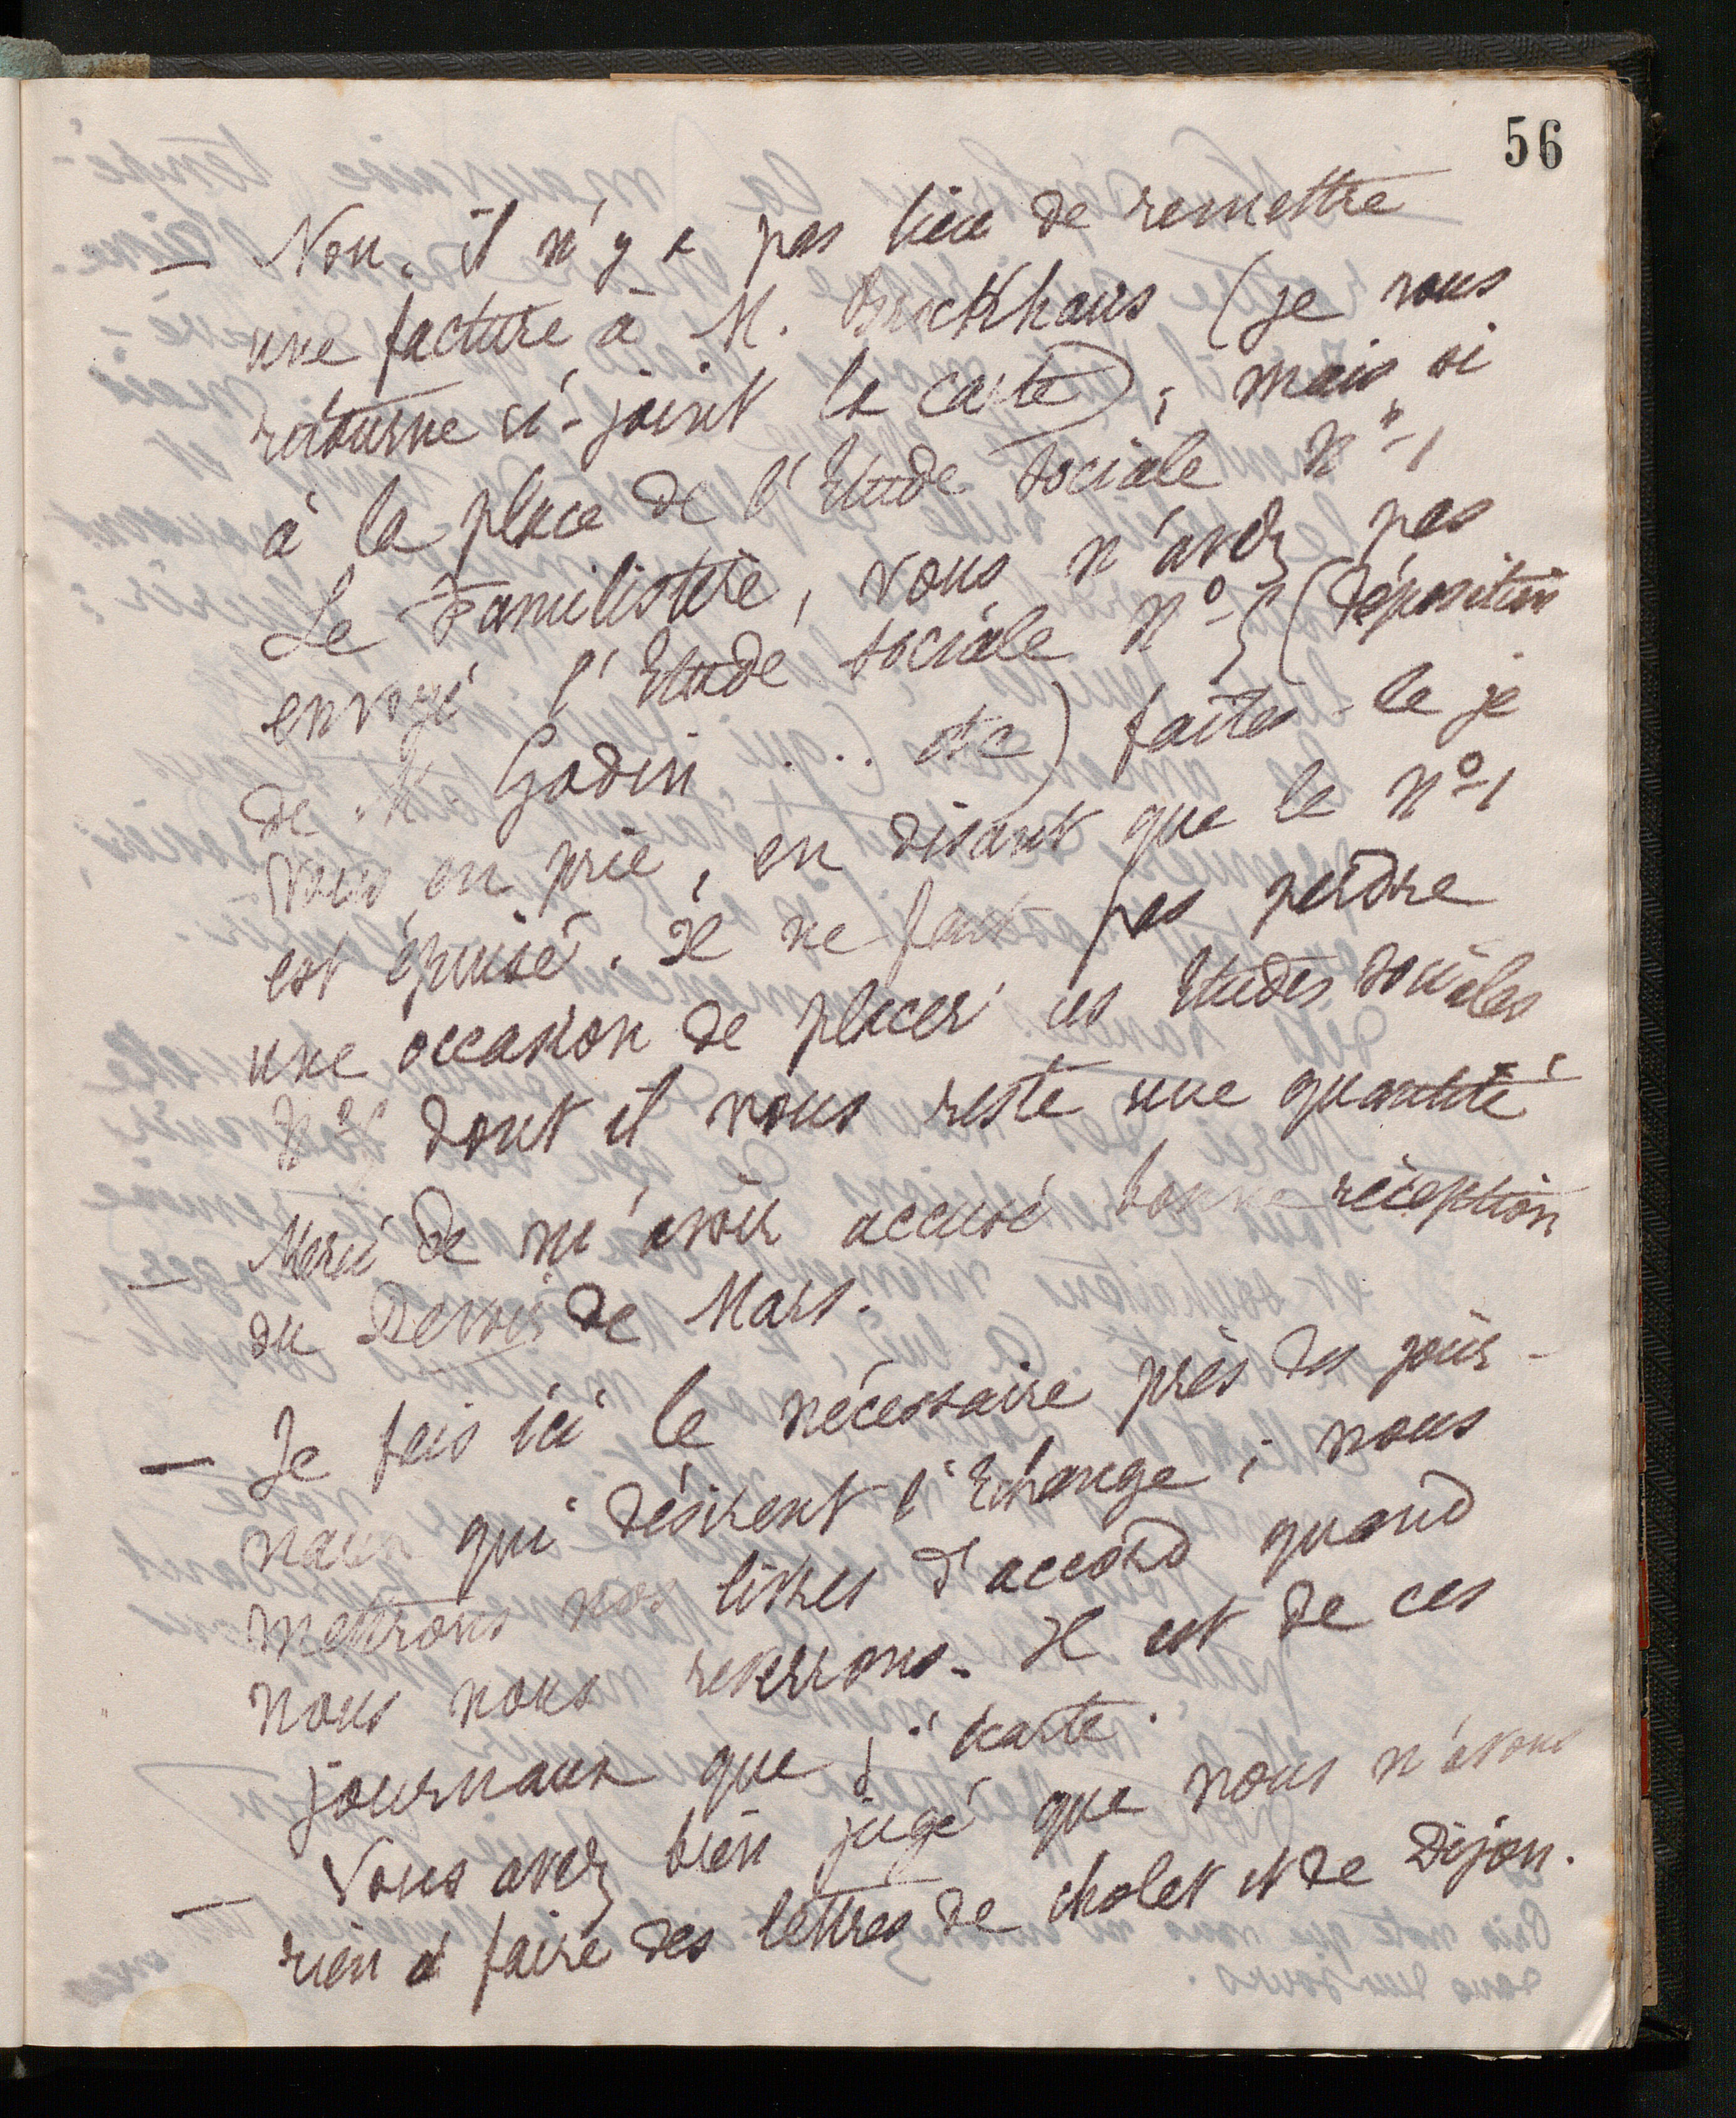 56
— Non, il n'y a pas lieu de remettre
une facture à M. Brockhaus (je vous
retourne ci-joint la carte); mais, si
à la place de l'Etude sociale Nº 1
Le Familistère, vous n'avez pas
envoyé l'Etude sociale Nº 5 (Déposition
de M. Godin ... etc) faites-le je
vous en prie, en disant que le Nº 1
est épuisé. Il ne faut pas perdre
une occasion de placer ces Etudes sociales
Nº 5 dont il nous reste une quantité
— Merci de m'avoir accusé bonne réception
du Devoir de Mars.
— Je fais ici le nécessaire près des jour-
naux qui désirent l'Echange; nous
mettrons nos listes d'accord quand
nous nous reverrons. Il est de ces
journaux que j'écarte.
— Vous avez bien jugé que nous n'avons
rien à faire des lettres de Cholet et de Dijon.